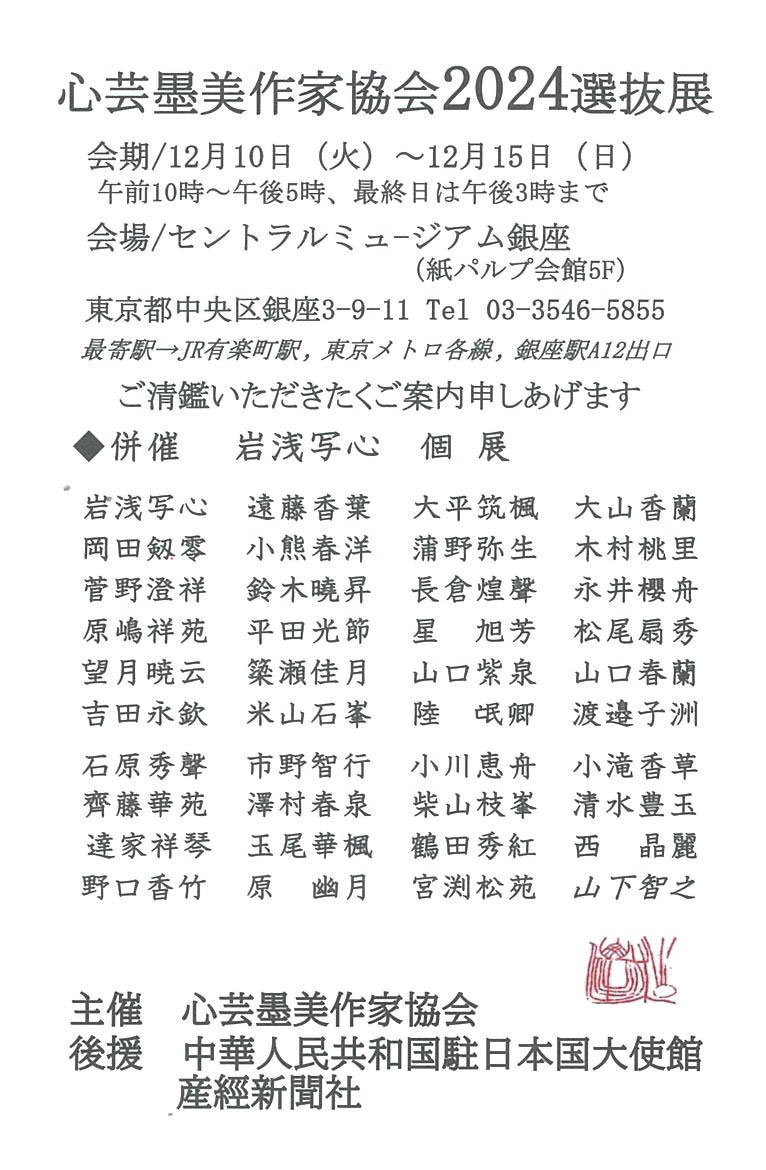 心芸墨美作家協会2024選抜展
会期/12月10日（火）～12月15日（日）
午前10時～午後5時、最終日は午後3時まで
会場/セントラルミュ－ジアム銀座
（紙パルプ会館5F）
東京都中央区銀座3-9-11 Tel 03-3546-5855
最寄駅→JR有楽町駅，東京メトロ各線，銀座駅A12出口
ご清鑑いただきたくご案内申しあげます
◆併催　岩浅写心　個 展
岩浅写心　遠藤香葉　大平筑楓　大山香蘭
岡田剱零　小熊春洋　蒲野弥生　木村桃里
菅野澄祥　鈴木曉昇　長倉煌聲　永井櫻舟
原嶋祥苑　平田光節　星　旭芳　松尾扇秀
望月暁云　築瀬佳月　山口紫泉　山口春蘭
吉田永欽　米山石峯　陸　氓卿　渡邉子洲
石原秀聲　市野智行　小川恵舟　小滝香草
齊藤華苑　澤村春泉　柴山枝峯　清水豊玉
達家祥琴　玉尾華楓　鶴田秀紅　西　晶麗
野口香竹　原　幽月　宮渕松苑　山下智之
主催　心芸墨美作家協会
後援　中華人民共和国駐日本国大使館
産經新聞社